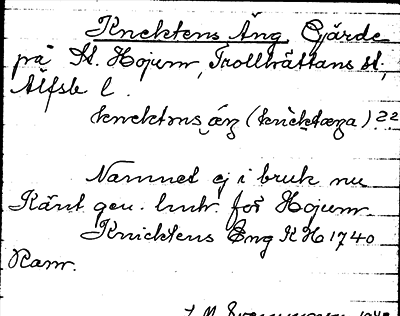 Knektens Äng Gjärde
på St. Hojum, Trollhättans st,
Älfsb l.
knektns æŋ (knèktæŋa) 22
Namnet ej i bruk nu
Känt gm. intr. för Hojum.
Knicktens Eng K H 1740
Ramr.
1940